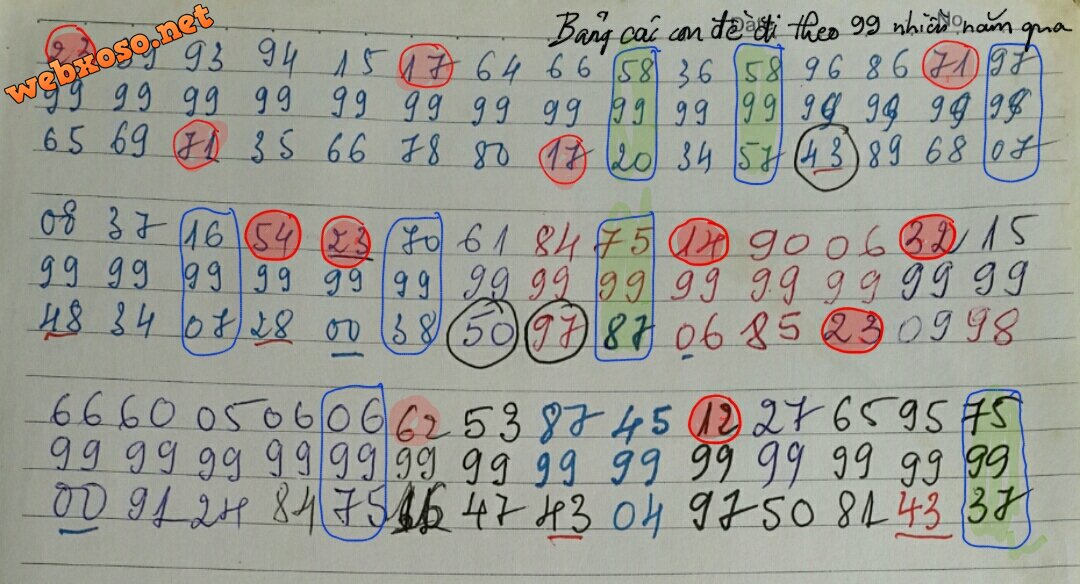 Bảng các con đề đi theo 99 nhiều năm qua
No
webxoso.net
23 99 93 94 15 17 64 66 58 36 58 96 86 71 97
99 99 99 99 99 99 99 99 99 99 99 99 99 99 98
65 69 71 35 66 78 80 17 20 34 57 43 89 68 07
08 37 16 54 23 70 61 84 75 14 90 06 32 15
99 99 99 99 99 99 99 99 99 99 99 99 99 99
48 34 07 28 00 38 50 97 87 06 85 23 09 98
66 60 05 06 06 62 53 87 45 12 27 65 95 75
99 99 99 99 99 99 99 99 99 99 99 99 99 99
00 91 24 84 75 16 47 43 04 97 50 81 43 37